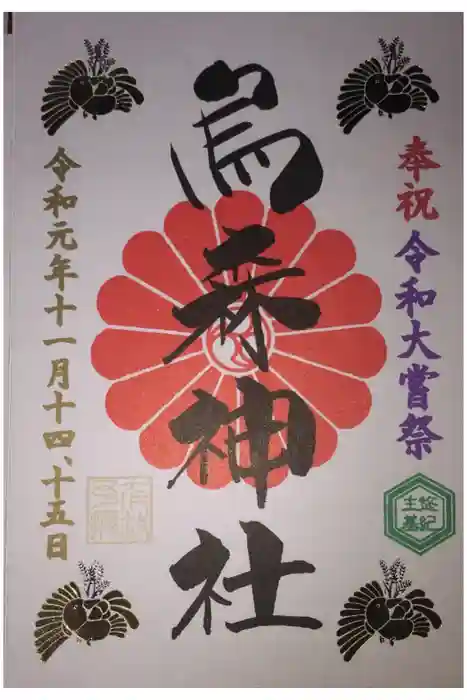 奉祝 令和大嘗祭
悠紀
主基
烏森神社
令和元年十一月十四、十五日